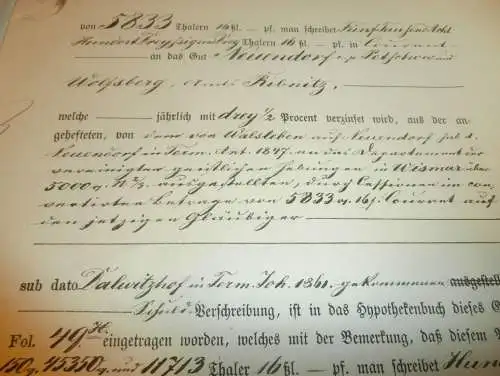 von 5833 Thalern 16 ßl. – pf. man schreibet Fünf Tausend Acht
Hundert Dreyssigunddrey Thalern 16 ßl. – pf. in Courant
an das Gut Neuendorf c. p. Petschow und
Wolfsberg, Amts Ribnitz,
welche jährlich mit drey 1/2 Procent verzinset wird, aus der
angehefteten, von dem von Walsleben auf Neuendorf sub d.
Neuendorf in Term. Ant. 1847 an das Departement der
vereinigten geistlichen Hebungen in Wismar über
5000 N 2/3 ausgestellten, durch Cessionen in con
vertirtem Betrage von 5833 16 ßl. Courant auf
den jetzigen Gläubiger
sub dato Dalwitzhof in Term. Joh. 1861 gekommenen ausgestell
Schuld-Verschreibung, ist in das Hypothekenbuch dieses G
Fol. 49 eingetragen worden, welches mit der Bemerkung, daß diesem
150, 45350 und 11713 Thaler 16 ßl. – pf. man schreibet Hun